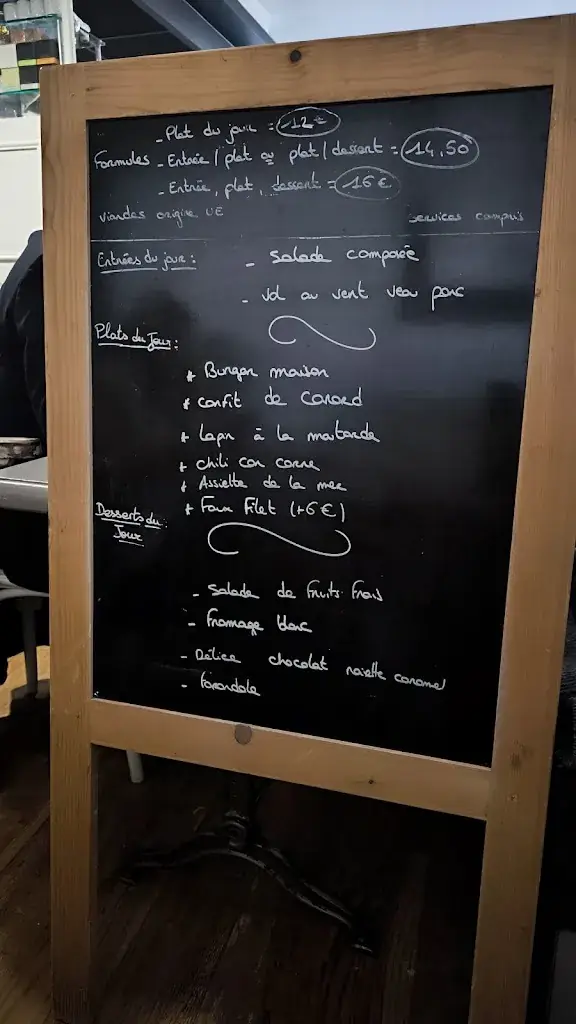 - Plat du jour = 12€
Formules - Entrée / plat ou plat / dessert = 14,50
- Entrée, plat, dessert = 16€
viandes origine UE services compris
Entrées du jour :
- Salade composée
- Vol au vent veau porc
Plats du Jour :
* Burger maison
* confit de canard
* Lapin à la moutarde
* chili con carne
* Assiette de la mer
* Faux Filet (+6€)
Desserts du Jour
- Salade de fruits frais
- Fromage blanc
- Délice chocolat noisette caramel
- Farandole